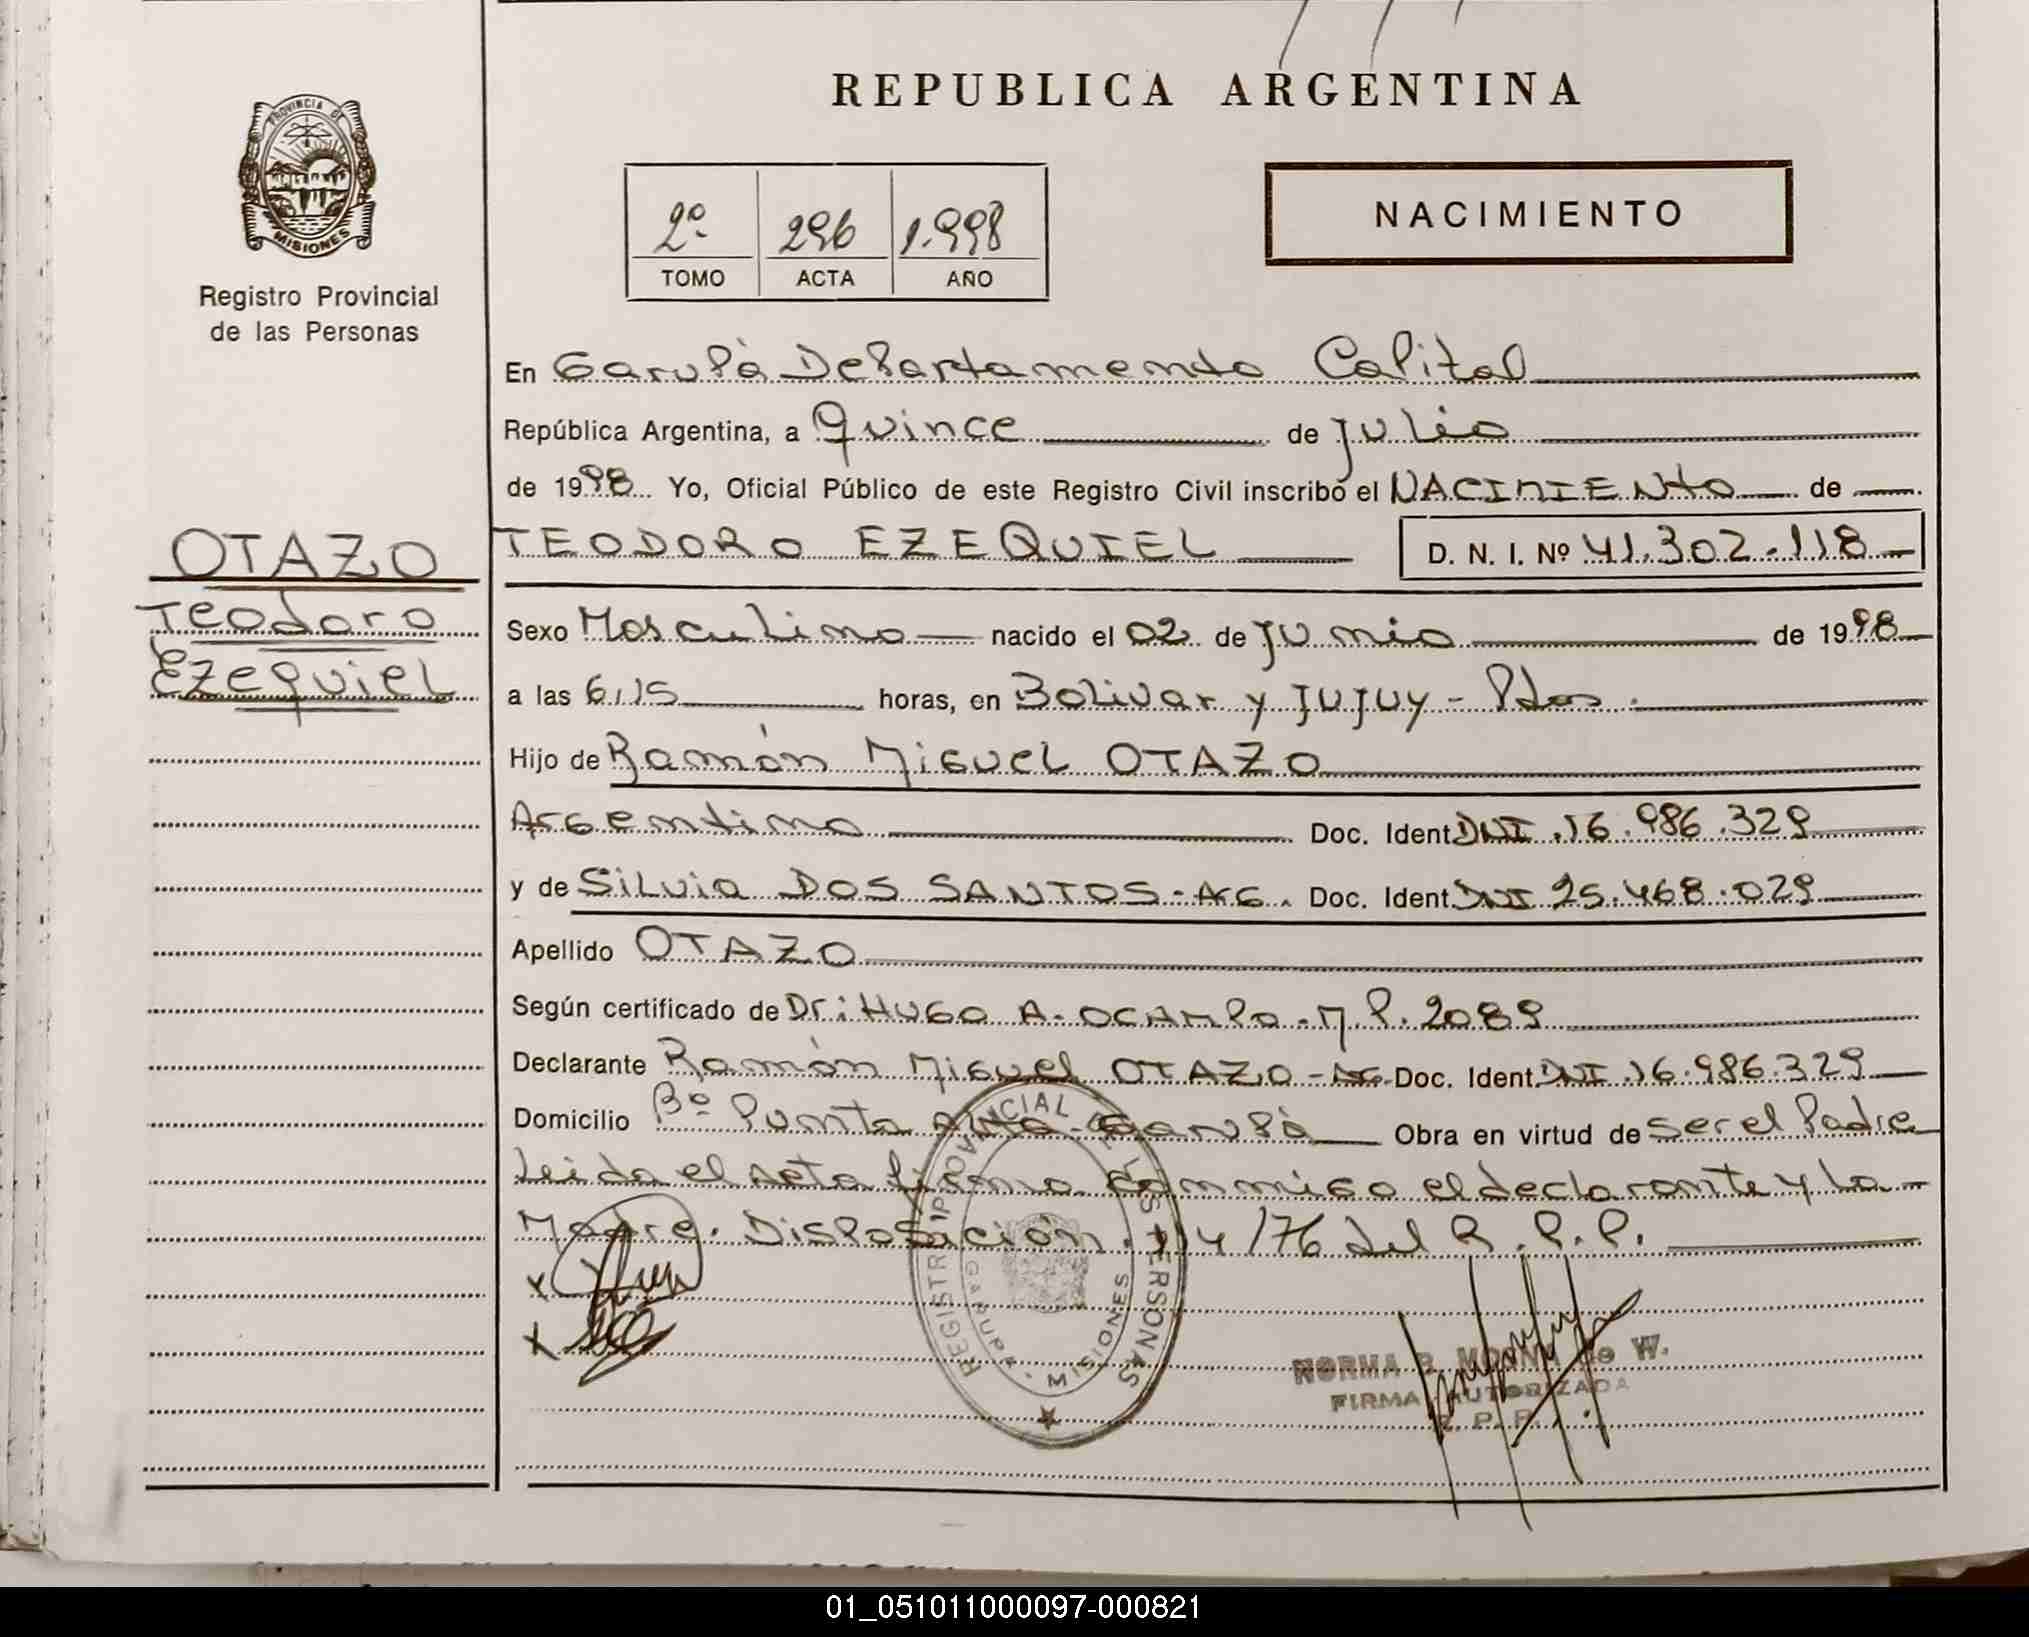 REPUBLICA ARGENTINA
PROVINCIA DE
MISIONES
Registro Provincial
de las Personas
2º 296 1.998
TOMO ACTA AÑO
NACIMIENTO
En Garupá Departamento Capital
República Argentina, a Quince de Julio
de 1998 Yo, Oficial Público de este Registro Civil inscribo el NACIMIENTO de
OTAZO
Teodoro
Ezequiel
TEODORO EZEQUIEL D. N. I. Nº 41.302.118
Sexo Masculino nacido el 02 de Junio de 1998
a las 6,15 horas, en Bolivar y Jujuy - Pdas.
Hijo de Ramón Miguel OTAZO
Argentino Doc. Ident. DNI. 16.986.329
y de Silvia DOS SANTOS - AG. Doc. Ident. DNI 25.468.029
Apellido OTAZO
Según certificado de Dr: HUGO A. OCAMPO. M.P. 2089
Declarante Ramón Miguel OTAZO - AG. Doc. Ident. DNI. 16.986.329
Domicilio Bº Punta Alta - Garupá Obra en virtud de ser el Padre
Leida el acta firma conmigo el declarante y la
Madre. Disposición. 114/76 del R.P.P.
REGISTRO PROVINCIAL DE LAS PERSONAS
GARUPA - MISIONES
NORMA de W.
FIRMA AUTORIZADA
R. P. P.
01_051011000097-000821